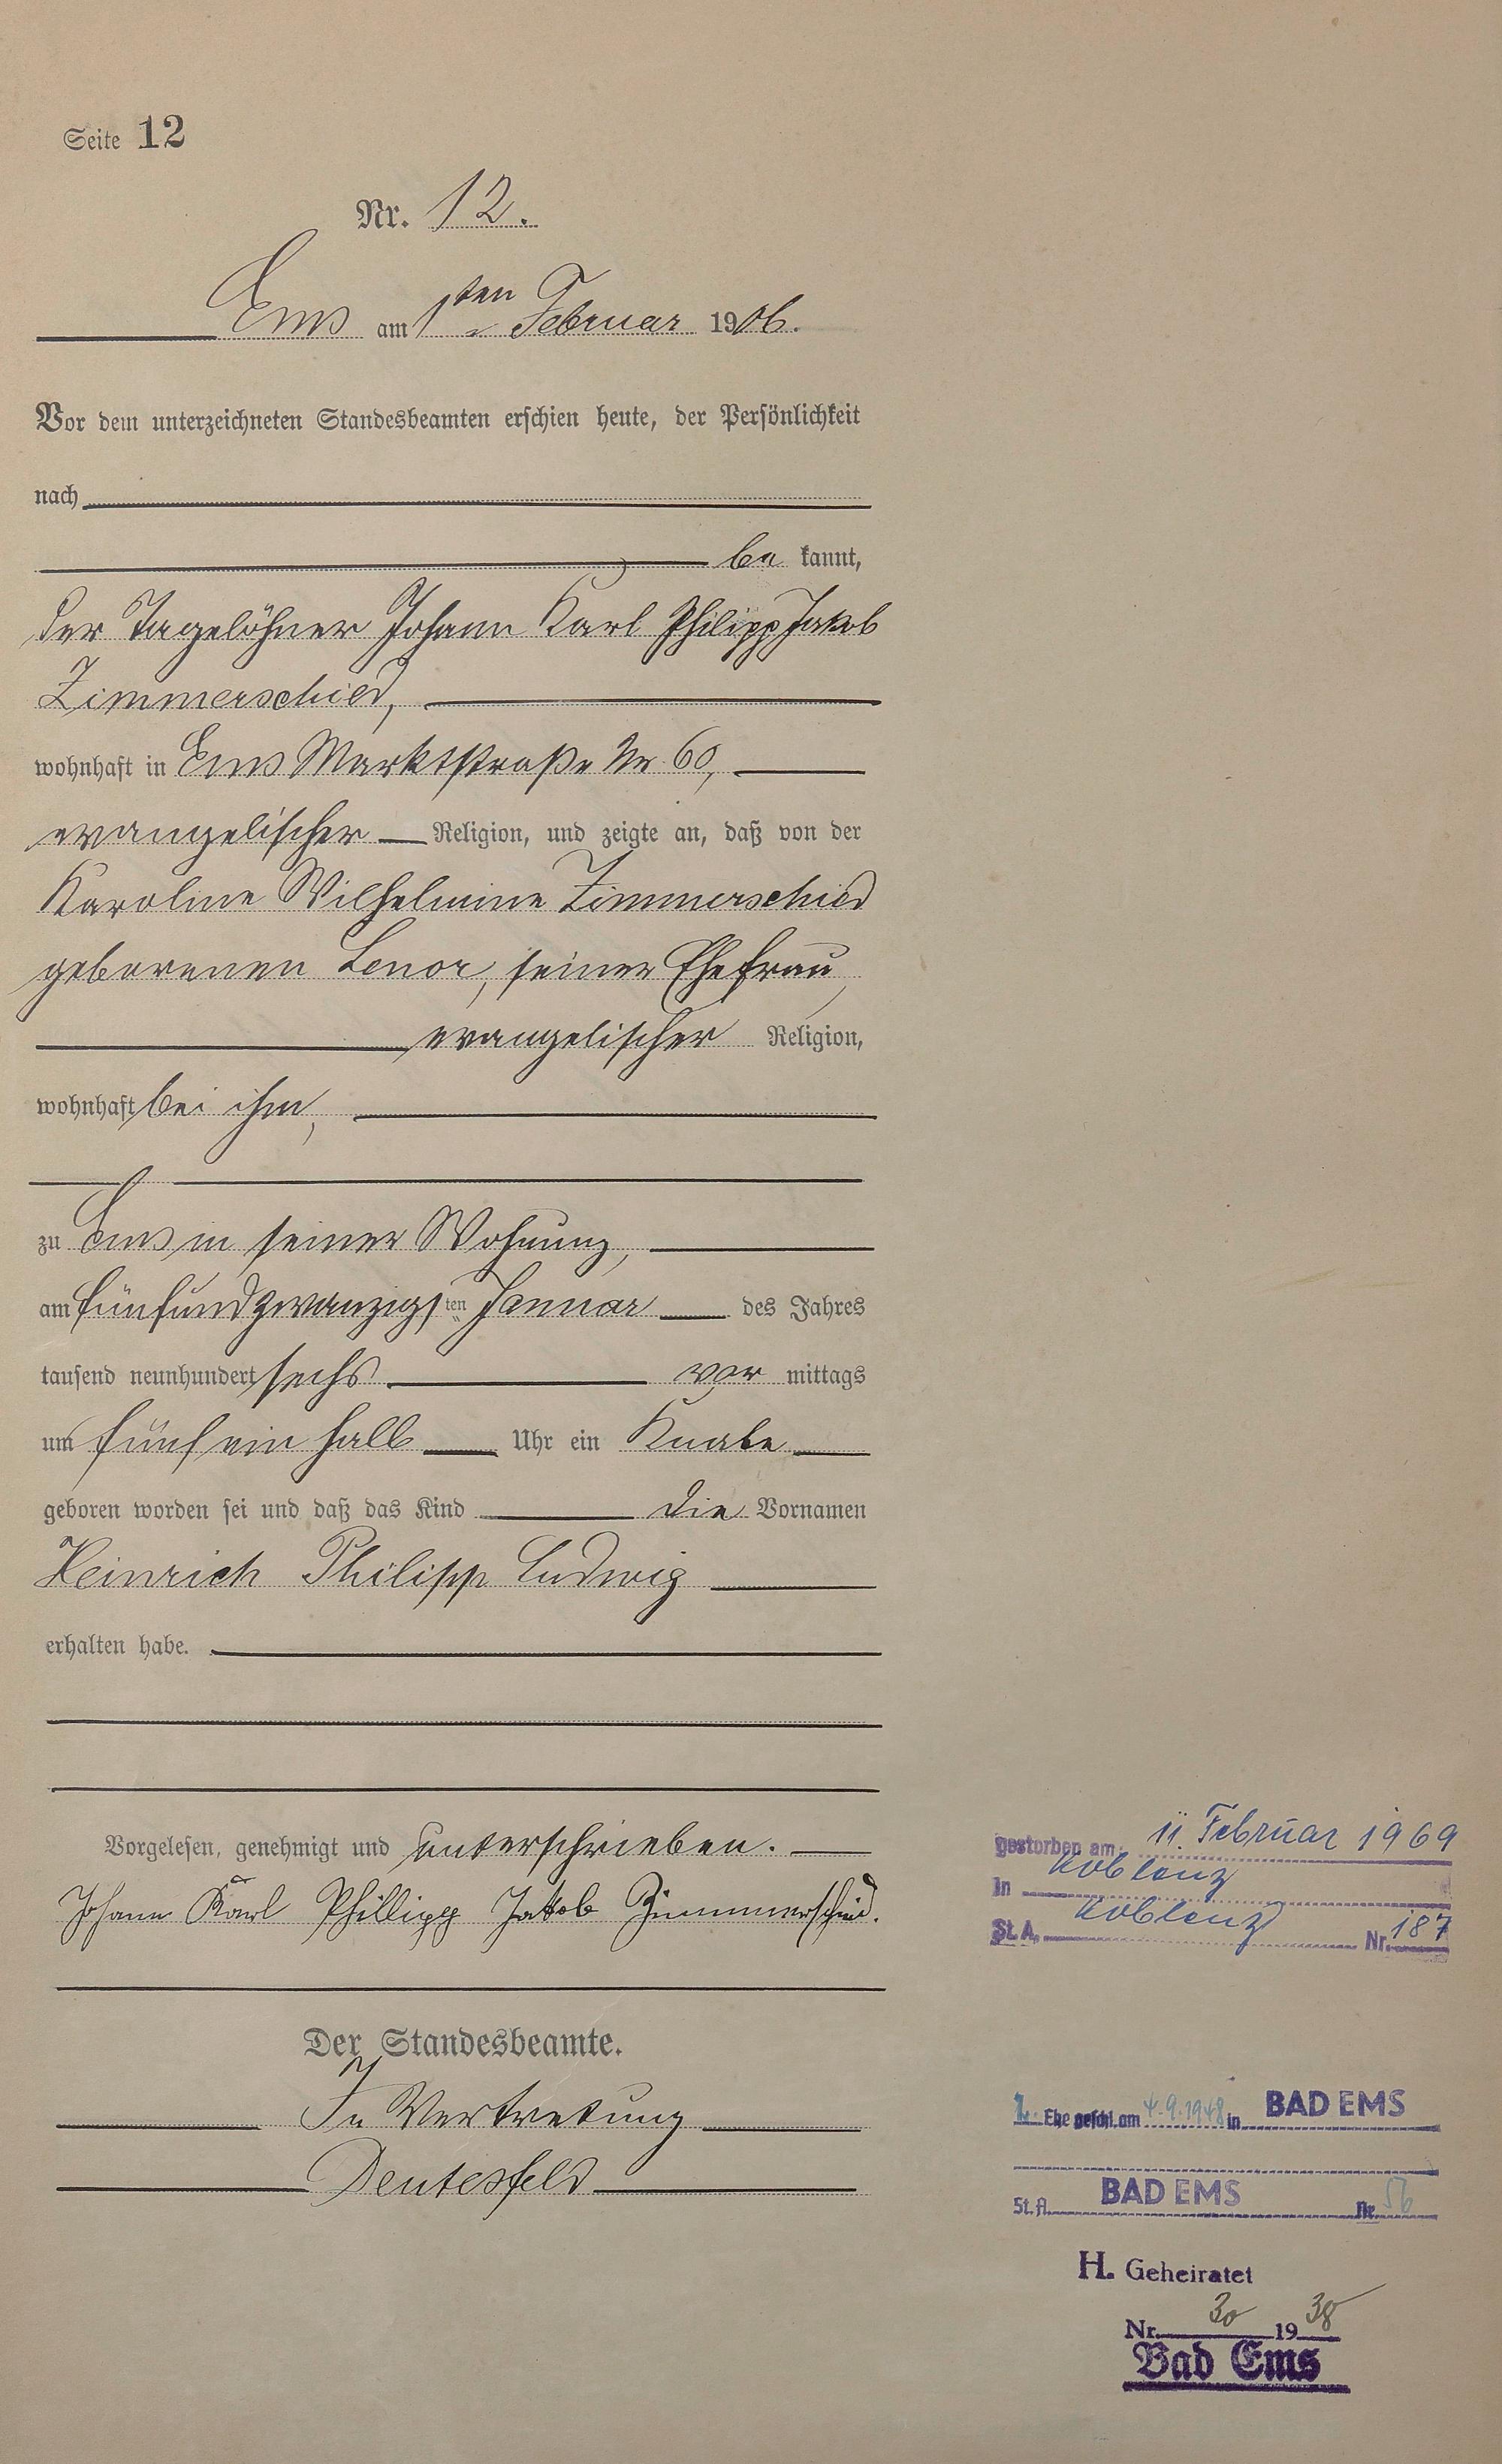 Seite 12
Nr. 12.
Ems am 1ten Februar 1906.
Vor dem unterzeichneten Standesbeamten erschien heute, der Persönlichkeit
nach
be kannt,
der Tagelöhner Johann Karl Philipp Jakob
Zimmerschied,
wohnhaft in Ems Marktstraße Nr. 60,
evangelischer Religion, und zeigte an, daß von der
Karoline Wilhelmine Zimmerschied
geborenen Lenor, seiner Ehefrau,
evangelischer Religion,
wohnhaft bei ihm,
zu Ems in seiner Wohnung,
am fünfundzwanzigsten Januar des Jahres
tausend neunhundert sechs vor mittags
um fünf ein halb Uhr ein Knabe
geboren worden sei und daß das Kind die Vornamen
Heinrich Philipp Ludwig
erhalten habe.
Vorgelesen, genehmigt und unterschrieben.
Johann Karl Phillipp Jakob Zimmerschied.
Der Standesbeamte.
In Vertretung
Deutesfeld
gestorben am 11. Februar 1969
In Koblenz
St. A. Koblenz Nr. 187
2. Ehe geschl. am 4.9.1948 in BAD EMS
St. A. BAD EMS Nr. 56
H. Geheiratet
Nr. 30 1938
Bad Ems